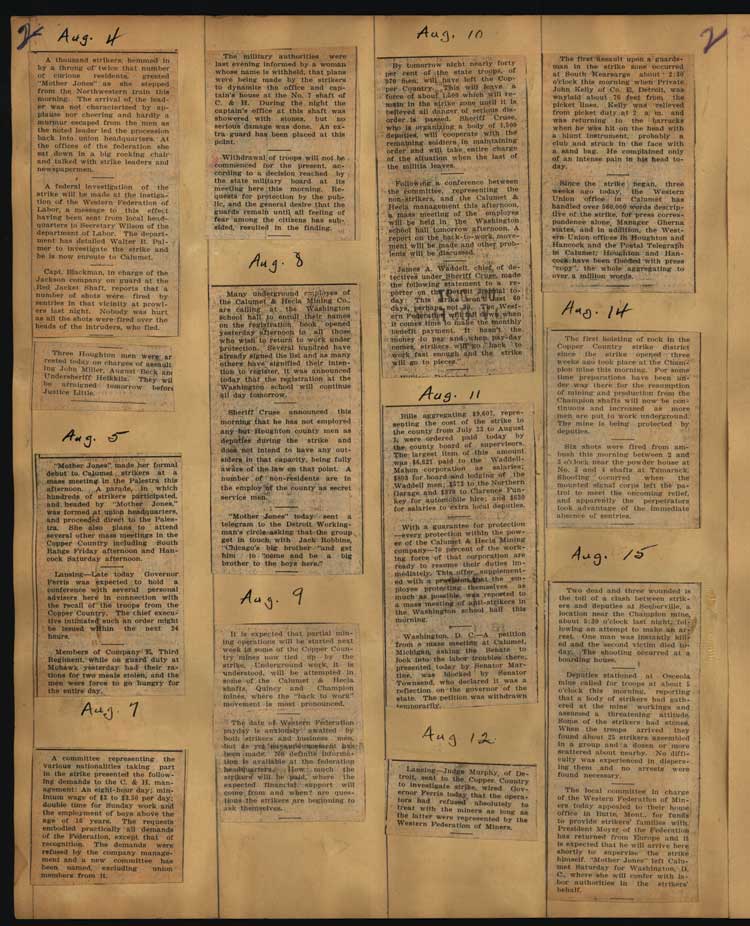 2
Aug. 4
A thousand strikers, hemmed in
by a throng of twice that number
of curious residents, greeted
"Mother Jones" as she stepped
from the Northwestern train this
morning. The arrival of the lead-
er was not characterized by ap-
plause nor cheering and hardly a
murmur escaped from the men as
the noted leader led the procession
back into union headquarters. At
the offices of the federation she
sat down in a big rocking chair
and talked with strike leaders and
newspapermen.
A federal investigation of the
strike will be made at the instiga-
tion of the Western Federation of
Labor, a message to this effect
having been sent from local head-
quarters to Secretary Wilson of the
department of Labor. The depart-
ment has detailed Walter B. Pal-
mer to investigate the strike and
he is now enroute to Calumet.
Capt. Blackman, in charge of the
Jackson company on guard at the
Red Jacket Shaft, reports that a
number of shots were fired by
sentries in that vicinity at prowl-
ers last night. Nobody was hurt
as all the shots were fired over the
heads of the intruders, who fled.
Three Houghton men were ar
rested today on charges of assault
ing John Miller, August Beck an
Undersheriff Heikkila. They wil
be arraigned tomorrow before
Justice Little.
Aug. 5
"Mother Jones" made her formal
debut to Calumet strikers at a
mass meeting in the Palestra this
afternoon. A parade, in which
hundreds of strikers participated,
and headed by "Mother Jones,"
was formed at union headquarters,
and proceeded direct to the Pales-
tra. She also plans to attend
several other mass meetings in the
Copper Country including South
Range Friday afternoon and Han-
cock Saturday afternoon.
Lansing—Late today Governor
Ferris was expected to hold a
conference with several personal
advisers here in connection with
the recall of the troops from the
Copper Country. The chief execu-
tive intimated such an order might
be issued within the next 24
hours.
Members of Company E, Third
Regiment, while on guard duty at
Mohawk yesterday had their ra-
tions for two meals stolen, and the
men were force to go hungry for
the entire day.
Aug. 7
A committee representing the
various nationalities taking part
in the strike presented the follow-
ing demands to the C. & H. man-
agement: An eight-hour day; min-
imum wage of $3 to $3.50 per day;
double time for Sunday work and
the employment of boys above the
age of 18 years. The requests
embodied practically all demands
of the Federation, except that of
recognition. The demands were
refused by the company manage-
ment and a new committee has
been named, excluding union
members from it.
The military authorities were
last evening informed by a woman
whose name is withheld, that plans
were being made by the strikers
to dynamite the office and cap-
tain's house at the No. 7 shaft of
C. & H. During the night the
captain's office at this shaft was
showered with stones, but no
serious damage was done. An ex-
tra guard has been placed at this
point.
Withdrawal of troops will not be
commenced for the present, ac-
cording to a decision reached by
the state military board at its
meeting here this morning. Re-
quests for protection by the pub-
lic, and the general desire that the
guards remain until all feeling of
fear among the citizens has sub-
sided, resulted in the finding.
Aug. 8
Many underground employes of
the Calumet & Hecla Mining Co.,
are calling at the Washington
school hall to enroll their names
on the registration book opened
yesterday afternoon to all those
who wish to return to work under
protection. Several hundred have
already signed the list and as many
others have signified their inten-
tion to register, it was announced
today that the registration at the
Washington school will continue
all day tomorrow.
Sheriff Cruse announced this
morning that he has not employed
any but Houghton county men as
deputies during the strike and
does not intend to have any out-
siders in that capacity, being fully
aware of the law on that point. A
number of non-residents are in
the employ of the county as secret
service men.
"Mother Jones" today sent a
telegram to the Detroit Working-
man's circle asking that the group
get in touch with Jack Robbins,
"Chicago's big brother "and get
him to "come and be a big
brother to the boys here."
Aug. 9
It is expected that partial min-
ing operations will be started next
week in some of the Copper Coun-
try mines now tied up by the
strike. Underground work, it is
understood, will be attempted in
some of the Calumet & Hecla
shafts, Quincy and Champion
mines, where the "back to work"
movement is most pronounced.
The date of Western Federation
payday is anxiously awaited by
both strikers and business men,
but as yet no announcement has
been made. No definite informa-
tion is available at the federation
headquarters. How much the
strikers will be paid, where the
expected financial support will
come from and when? are ques-
tions the strikers are beginning to
ask themselves.
Aug. 10
By tomorrow night nearly forty
per cent of the state troops, of
970 men, will have left the Cop-
per Country. This will leave a
force of about 1,500 which will re-
main in the strike zone until it is
believed all danger of serious dis-
order is passed. Sheriff Cruse,
who is organizing a body of 1,500
deputies, will cooperate with the
remaining soldiers in maintaining
order and will take entire charge
of the situation when the last of
the militia leaves.
Following a conference between
the committee, representing the
non-strikers, and the Calumet &
Hecla management this afternoon,
a mass meeting of the employes
will be held in the Washington
school hall tomorrow afternoon. A
report on the back-to-work move-
ment will be made and other prob-
lems will be discussed.
James A. Waddell, chief of de-
tectives under Sheriff Cruse, made
the following statement to a re-
porter on the Detroit Journal to-
day: This strike won't last 60
days, perhaps not 30. The West-
ern Federation will die down when
it comes time to make the monthly
benefit payment. It hasn't the
money to pay and when pay-day
comes, strikers will go back to
work fast enough and the strike
will go to pieces."
Aug. 11
Bills aggregating $9,607, repre-
senting the cost of the strike to
the county from July 23 to August
3, were ordered paid today by
the county board of supervisors.
The largest item of this amount
was $6,521 paid to the Waddell-
Mahon corporation as salaries;
$803 for board and lodging of the
Waddell men; $573 to the Northern
Garage and $379 to Clarence Pun-
key for automobile hire; and $650
for salaries to extra local deputies.
With a guarantee for protection
—every protection within the pow-
er of the Calumet & Hecla Mining
company—70 percent of the work-
ing force of that corporation are
ready to resume their duties im-
mediately. This offer supplement-
ed with a provision that the em-
ploye protecting themselves as
much as possible, was reported to
a mass meeting of anti-strikers in
the Washington school hall this
morning.
Washington, D. C.—A petition
from a mass meeting at Calumet,
Michigan, asking the Senate to
look into the labor troubles there,
presented today by Senator Mar-
tine, was blocked by Senator
Townsend, who declared it was a
reflection on the governor of the
state. The petition was withdrawn
temporarily.
Aug 12
Lansing—Judge Murphy, of De-
troit, sent to the Copper Country
to investigate strike, wired Gov-
ernor Ferris today that the opera-
tors had refused absolutely to
treat with the miners as long as
the latter were represented by the
Western Federation of Miners.
2
The first assault upon a guards-
man in the strike zone occurred
at South Kearsarge about 2:30
o'clock this morning when Private
John Kelly of Co. E, Detroit, was
waylaid about 70 feet from the
picket lines. Kelly was relieved
from picket duty at 2 a. m. and
was returning to the barracks
when he was hit on the head with
a blunt instrument, probably a
club and struck in the face with
a sand bag. He complained only
of an intense pain in his head to-
day.
Since the strike began, three
weeks ago today, the Western
Union office in Calumet has
handled over 560,000 words descrip-
tive of the strike, for press corres-
pondence alone, Manager Gherna
states, and in addition, the West-
ern Union offices in Houghton and
Hancock and the Postal Telegraph
in Calumet, Houghton and Han-
cock have been flooded with press
"copy", the whole aggregating to
over a million words.
Aug. 14
The first hoisting of rock in the
Copper Country strike district
since the strike opened three
weeks ago took place at the Cham-
pion mine this morning. For some
time preparations have been un-
der way there for the resumption
of mining and production from the
Champion shafts will now be con-
tinuous and increased as more
men are put to work underground.
The mine is being protected by
deputies.
Six shots were fired from am-
bush this morning between 2 and
3 o'clock near the powder house at
No. 2 and 5 shafts at Tamarack.
Shooting occurred when the
mounted signal corps left the pa-
trol to meet the oncoming relief,
and apparently the perpetrators
took advantage of the immediate
absence of sentries.
Aug. 15
Two dead and three wounded is
the toll of a clash between strik-
ers and deputies at Seeberville, a
location near the Champion mine,
about 5:30 o'clock last night, fol-
lowing an attempt to make an ar-
rest. One man was instantly kill-
ed and the second victim died to-
day. The shooting occurred at a
boarding house.
Deputies stationed at Osceola
mine called for troops at about 5
o'clock this morning, reporting
that a body of strikers had gath-
ered at the mine workings and
assumed a threatening attitude.
Some of the strikers had stones.
When the troops arrived they
found about 25 strikers assembled
in a group and a dozen or more
scattered about nearby. No diffi-
culty was experienced in dispers-
ing them and no arrests were
found necessary.
The local committee in charge
of the Western Federation of Min-
ers today appealed to their home
office in Butte, Mont., for funds
to provide strikers' families with.
President Moyer of the Federation
has returned from Europe and it
is expected that he will arrive here
shortly to supervise the strike
himself. "Mother Jones" left Calu-
met Saturday for Washington, D.
C., where she will confer with la-
bor authorities in the strikers'
behalf.